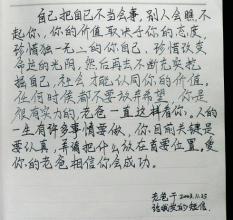 自己把自己不当会事，别人会瞧不
起你，你的价值取决于你的态度，
珍惜独一无二的你自己，珍惜改变
命运的光阴，然后再去不断充实挖
掘自己，社会才能认同你的价值。
任何时候都不要放弃希望，你是
很有实力的，老爸一直这样看你。人的
一生有许多事情要做，你目前关键是
要认真，并请把什么放在首要位置，爱
你的老爸相信你会成功。
老爸于2003.11.25
的短信.